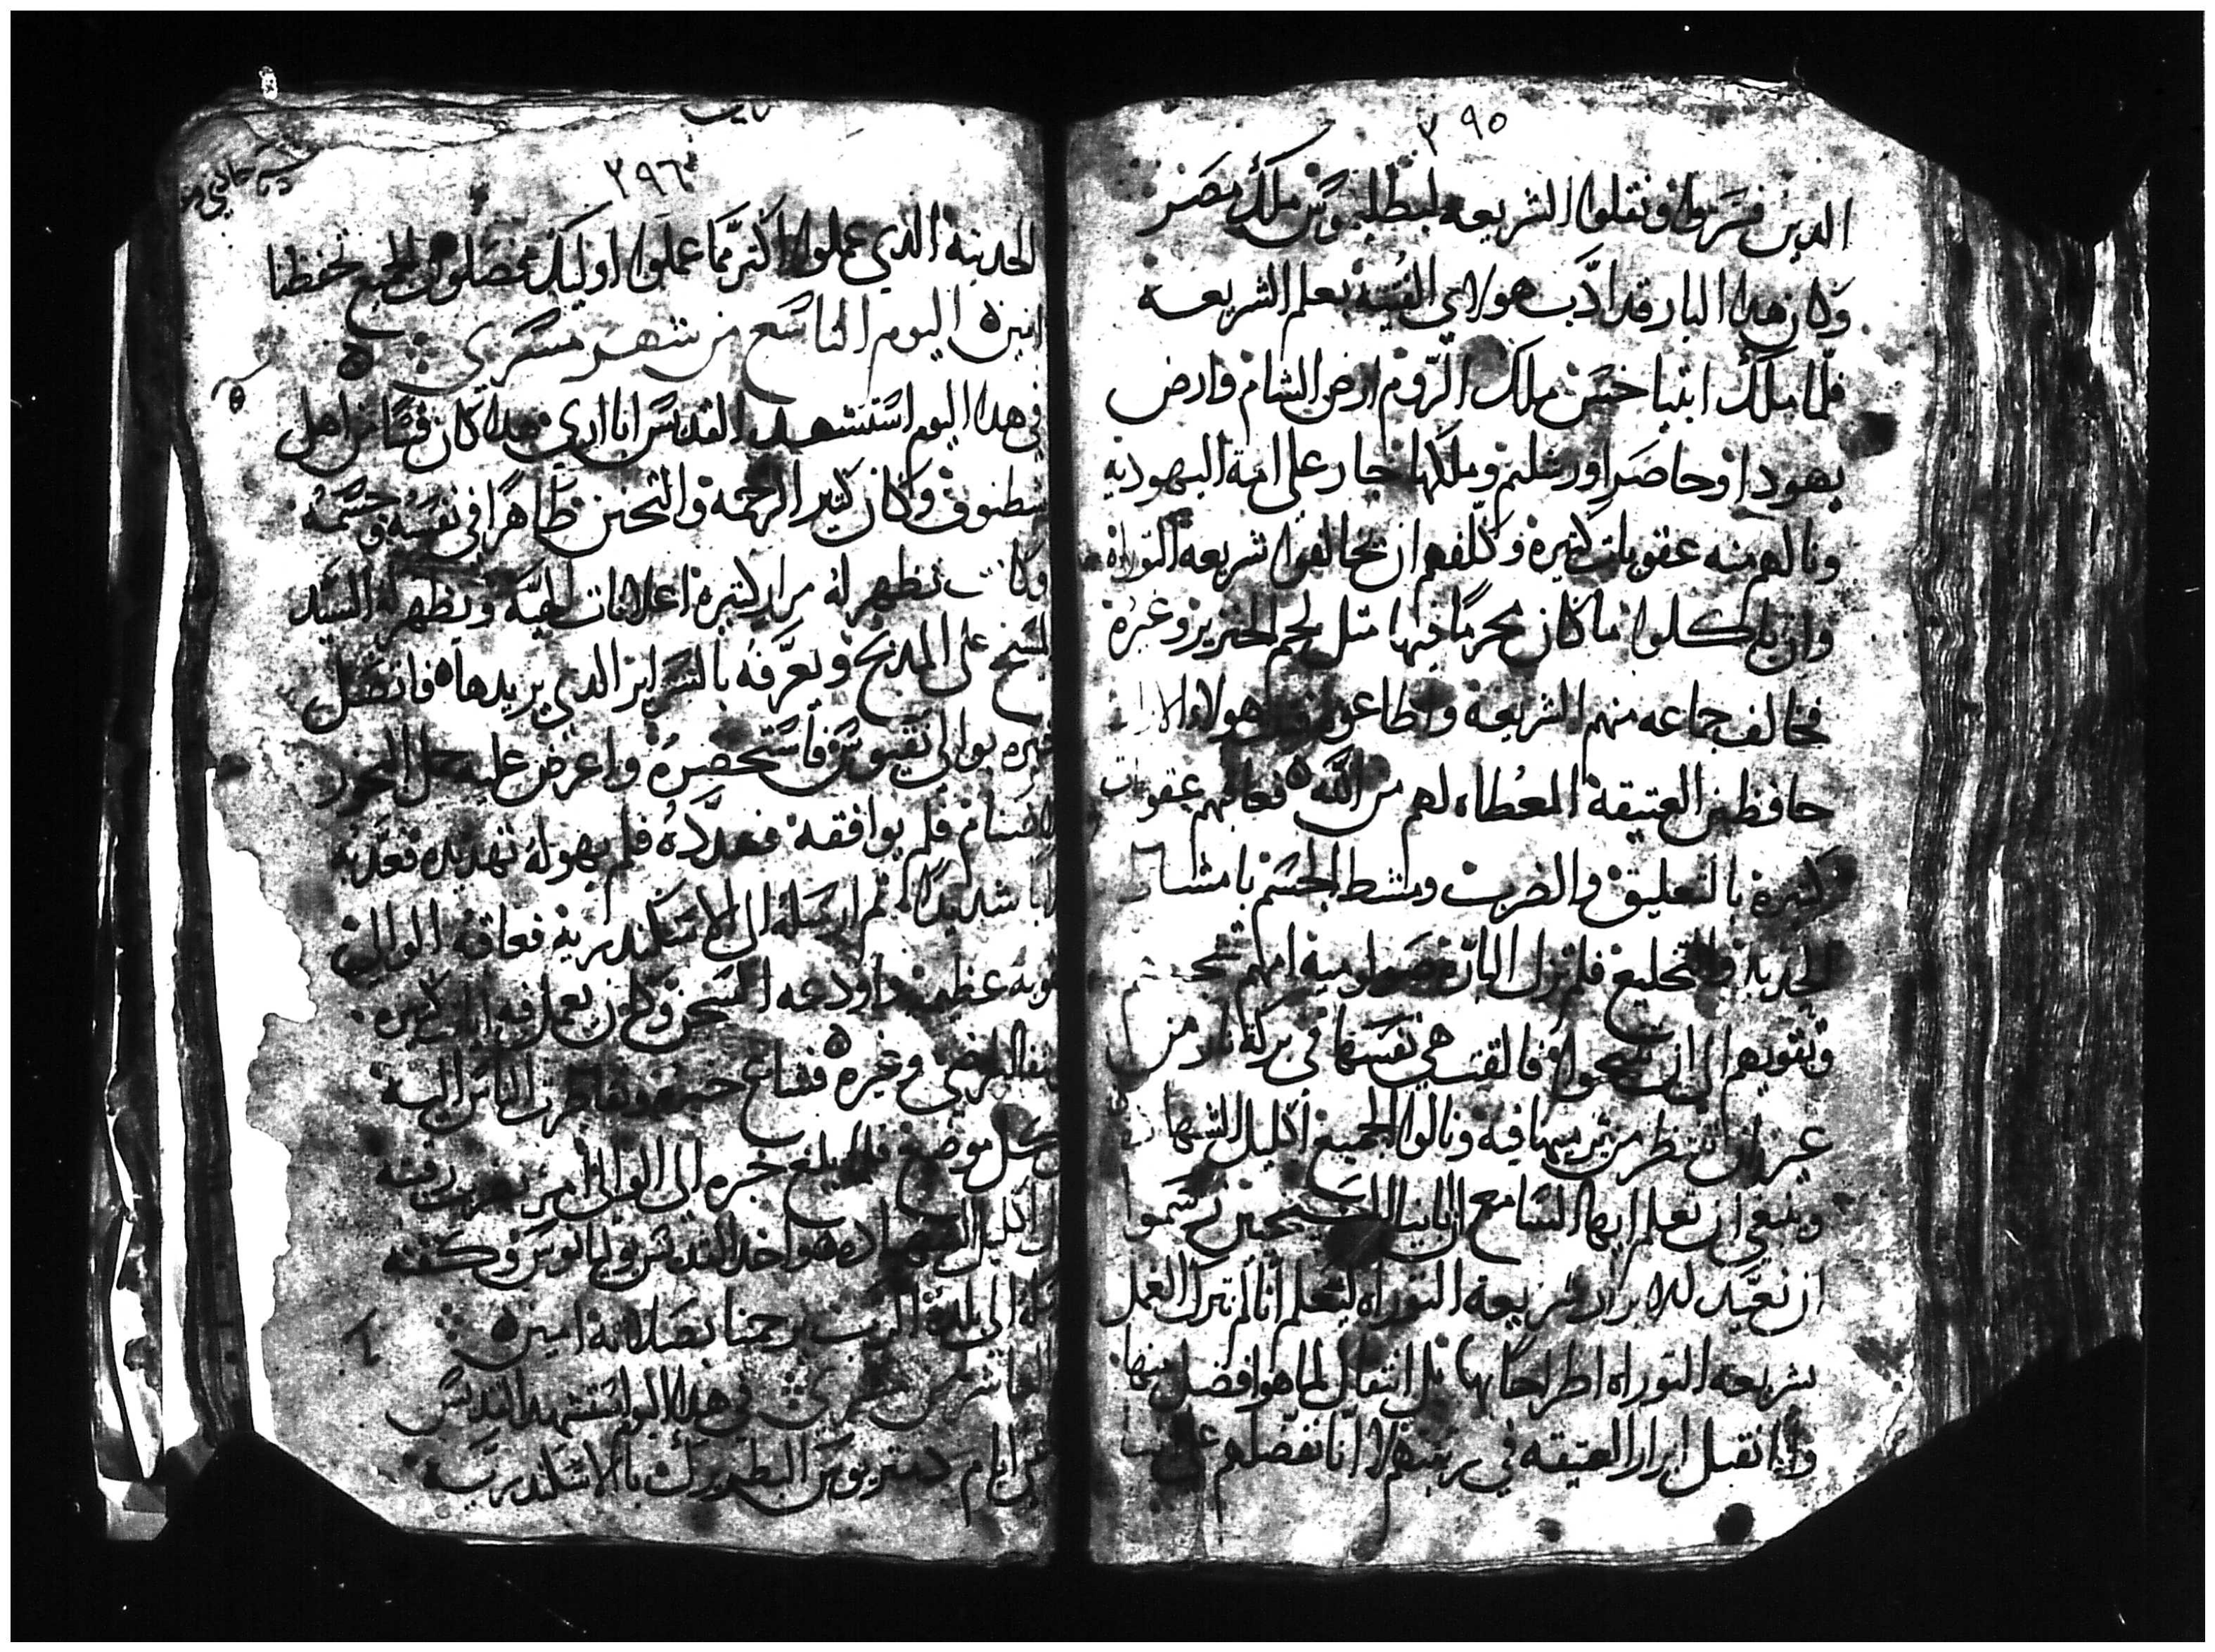 ٣٩٥
الدين فسروا ونقلوا الشريعه لبطليوس ملك مصر
وكان هدا البار قد ادّب هولاي الفتية بعلم الشريعه
فلما ملك انتياخس ملك الروم ارض الشام وارض
يهودا وحاصر اورشليم وملكها جار على امة اليهوديه
ونالهم منه عقوبات كتيره وكلفهم ان يخالفوا شريعه التوراه
وان ياكلوا ما كان محرمًا فيها متل لحم الخنزير وغيره
فخالف جماعه منهم الشريعه واطاعوه هولاء الابرار
حافظين العتيقة المعطاه لهم من الله فعاقبهم عقوبات
كتيره بالتعليق والضرب ومشط الجسم بامشاط
الحديد والتخليع فلم تزل امهم
وتقويهم الى ان فالقت هي نفسها في بركة نار من
غير ان تنظر من يرميها فيه ونالوا الجميع اكليل الشهاده
وينبغي ان تعلم ايها السامع ان ابانا المسيحيين رسموا
ان نعيد للابرار شريعه التوراه ليعلم انا لم نترك العمل
بشريعه التوراه اطراحًا لها بل انتقال لما هو افضل منها
وانا نقبل ابرار العتيقه في رتبتهم لا انا نفضلهم على
٣٩٦
الحديثه الدي عملوا اكتر مما عملوا اوليك الجميع تحفظنا
امين اليوم التاسع من شهر مسرى
في هدا اليوم استشهد القديس ابا اري هدا كان قسًا من اهل
شطنوف وكان كتير الرحمه والتحنن طاهرًا في نفسه وجسمه
وكانت تظهر له مرار كتيره اعلانات الهيه ويظهر له السيد
المسيح على المدبح ويعرفه بالسراير الدي يريدها فاتصل
خبره بوالي نقيوس فاستحضره واعرض عليه حمل البخور
للاصنام فلم يوافقه فهدده فلم يهوله تهديده فعدبه
عدابا شديدًا تم ارسله الى الاسكندرية فعاقه الوالي
عقوبه عظيمه واودعه السجن وكان يعمل فيه ايات كتيره
بشفا المرضى وغيره فشاع خبره وتقاطرت الناس اليه
من كل موضع فلما بلغ خبره الى الوالي امر بضرب رقبته
ونال اكليل الشهاده واخد القديس يوليانوس وكفنه
وارسله الى بلده الرب يرحمنا بصلاته امين
العاشر من مسري في هدا اليوم استشهد القديس
في ايام دمتريوس البطريرك بالاسكندريه